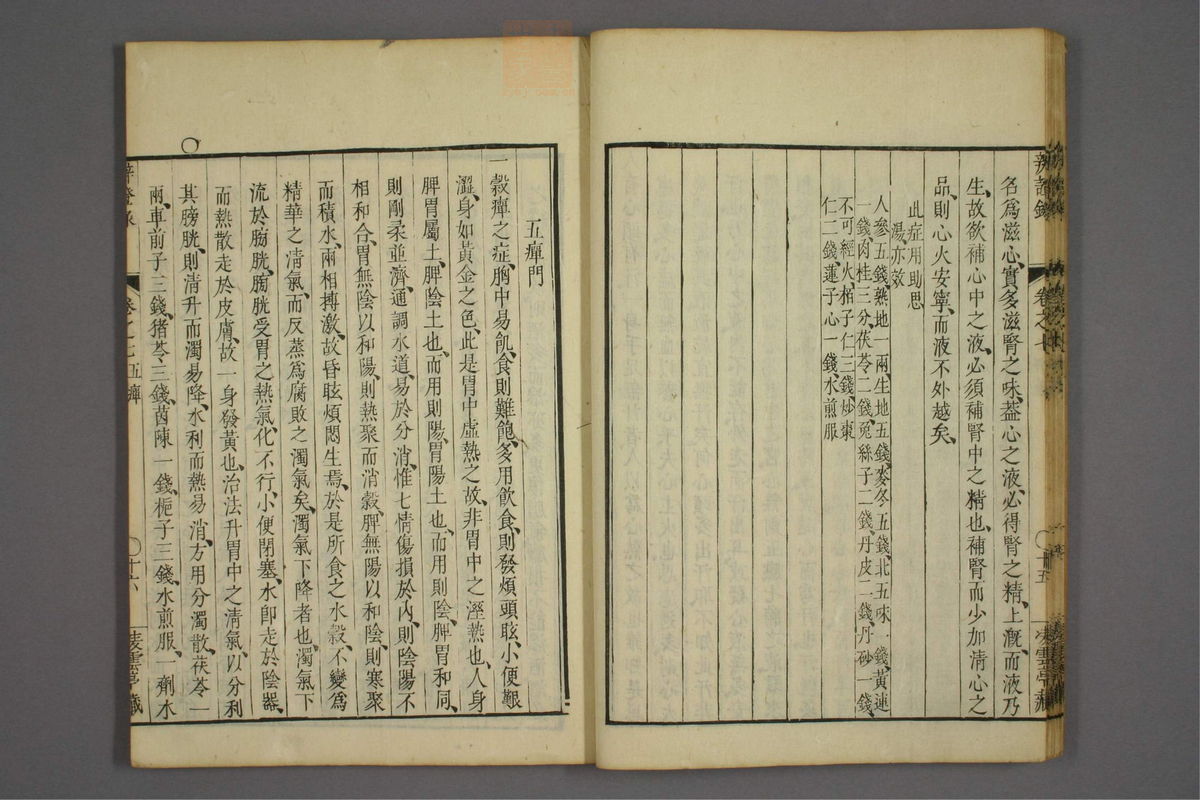 辨證錄 卷之七 十五
名為滋心、實多滋腎之味、蓋心之液、必得腎之精、上漑而液乃
生、故欲補心中之液、必須補腎中之精也、補腎而少加清心之
品、則心火安寧、而液不外越矣、
此症用助思
湯亦效
人參五錢、熟地一兩生地五錢、麥冬五錢、北五味一錢、黃連
一錢肉桂三分、茯苓二錢、兎絲子二錢、丹皮一錢、丹砂一錢、
不可經火、柏子仁三錢、炒棗
仁二錢、蓮子心一錢、水煎服
五癉門
一穀癉之症、胸中易飢、食則難飽、多用飲食、則發煩頭眩、小便艱
澀、身如黃金之色、此是胃中虛熱之故、非胃中之溼熱也、人身
脾胃屬土、脾陰土也、而用則陽、胃陽土也、而用則陰、脾胃和同、
則剛柔並濟、通調水道、易於分消、惟七情傷損於內、則陰陽不
相和合、胃無陰以和陽、則熱聚而消穀、脾無陽以和陰、則寒聚
而積水、兩相搏激、故昏眩煩悶生焉、於是所食之水穀、不變為
精華之清氣、而反蒸為腐敗之濁氣矣、濁氣下降者也、濁氣下
流於膀胱、膀胱受胃之熱氣、化不行、小便閉塞、水卽走於陰器、
而熱散走於皮膚、故一身發黃也、治法升胃中之清氣、以分利
其膀胱、則清升而濁易降、水利而熱易消、方用分濁散、茯苓一
兩、車前子三錢、猪苓三錢、茵陳一錢、梔子三錢、水煎服、一劑水
卷之七五癉 十六